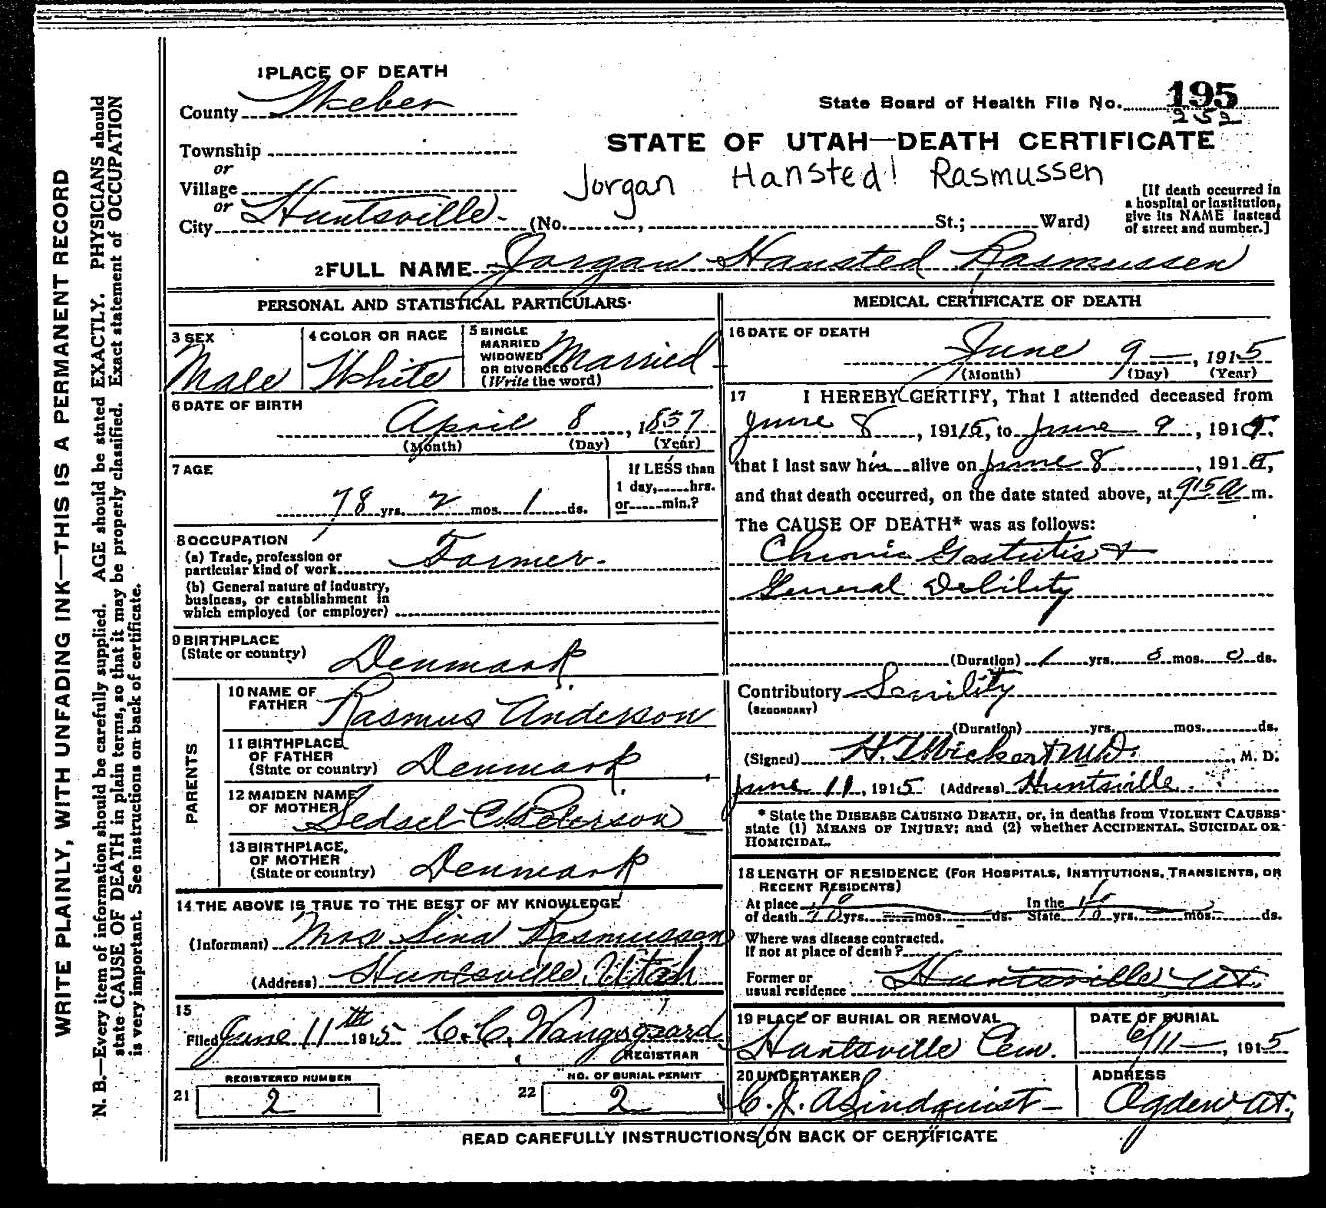 1 PLACE OF DEATH
County Weber
State Board of Health File No. 195
252
STATE OF UTAH—DEATH CERTIFICATE
Township
or
Village
or
City Huntsville. (No. , St.; Ward)
Jorgan Hansted! Rasmussen
[If death occurred in a hospital or institution, give its NAME instead of street and number.]
2 FULL NAME Jorgan Hansted Rasmussen
PERSONAL AND STATISTICAL PARTICULARS.
3 SEX
Male
4 COLOR OR RACE
White
5 SINGLE MARRIED WIDOWED OR DIVORCED (Write the word)
Married
6 DATE OF BIRTH
April 8, 1837
(Month) (Day) (Year)
7 AGE
78 yrs. 2 mos. 1 ds.
If LESS than 1 day, hrs. or min.?
8 OCCUPATION
(a) Trade, profession or particular kind of work Farmer.
(b) General nature of industry, business, or establishment in which employed (or employer)
9 BIRTHPLACE
(State or country) Denmark
PARENTS
10 NAME OF FATHER Rasmus Anderson
11 BIRTHPLACE OF FATHER (State or country) Denmark
12 MAIDEN NAME OF MOTHER Sedsel C. Peterson
13 BIRTHPLACE OF MOTHER (State or country) Denmark
14 THE ABOVE IS TRUE TO THE BEST OF MY KNOWLEDGE
(Informant) Mrs Sina Rasmussen
(Address) Huntsville, Utah
15
Filed June 11th 1915 C. C. Wangsgaard
REGISTRAR
REGISTERED NUMBER
21 2
NO. OF BURIAL PERMIT
22 2
MEDICAL CERTIFICATE OF DEATH
16 DATE OF DEATH
June 9, 1915
(Month) (Day) (Year)
17 I HEREBY CERTIFY, That I attended deceased from
June 8, 1915, to June 9, 191
that I last saw him alive on June 8, 191
and that death occurred, on the date stated above, at 915 a m.
The CAUSE OF DEATH* was as follows:
Chronic Gastritis +
General Debility
(Duration) 1 yrs. mos. 0 ds.
Contributory Senility
(SECONDARY)
(Duration) yrs. mos. ds.
(Signed) M.D., M. D.
June 11, 1915 (Address) Huntsville
* State the DISEASE CAUSING DEATH, or, in deaths from VIOLENT CAUSES state (1) MEANS OF INJURY; and (2) whether ACCIDENTAL, SUICIDAL OR HOMICIDAL.
18 LENGTH OF RESIDENCE (FOR HOSPITALS, INSTITUTIONS, TRANSIENTS, OR RECENT RESIDENTS)
At place of death yrs. mos. ds. In the State yrs. mos. ds.
Where was disease contracted,
If not at place of death?
Former or usual residence Huntsville Ut.
19 PLACE OF BURIAL OR REMOVAL
Huntsville Cem.
DATE OF BURIAL
6/11, 1915
20 UNDERTAKER
C. J. A. Lindquist
ADDRESS
Ogden Ut.
READ CAREFULLY INSTRUCTIONS ON BACK OF CERTIFICATE
WRITE PLAINLY, WITH UNFADING INK—THIS IS A PERMANENT RECORD
N. B.—Every item of information should be carefully supplied. AGE should be stated EXACTLY. PHYSICIANS should
state CAUSE OF DEATH in plain terms, so that it may be properly classified. Exact statement of OCCUPATION
is very important. See instructions on back of certificate.